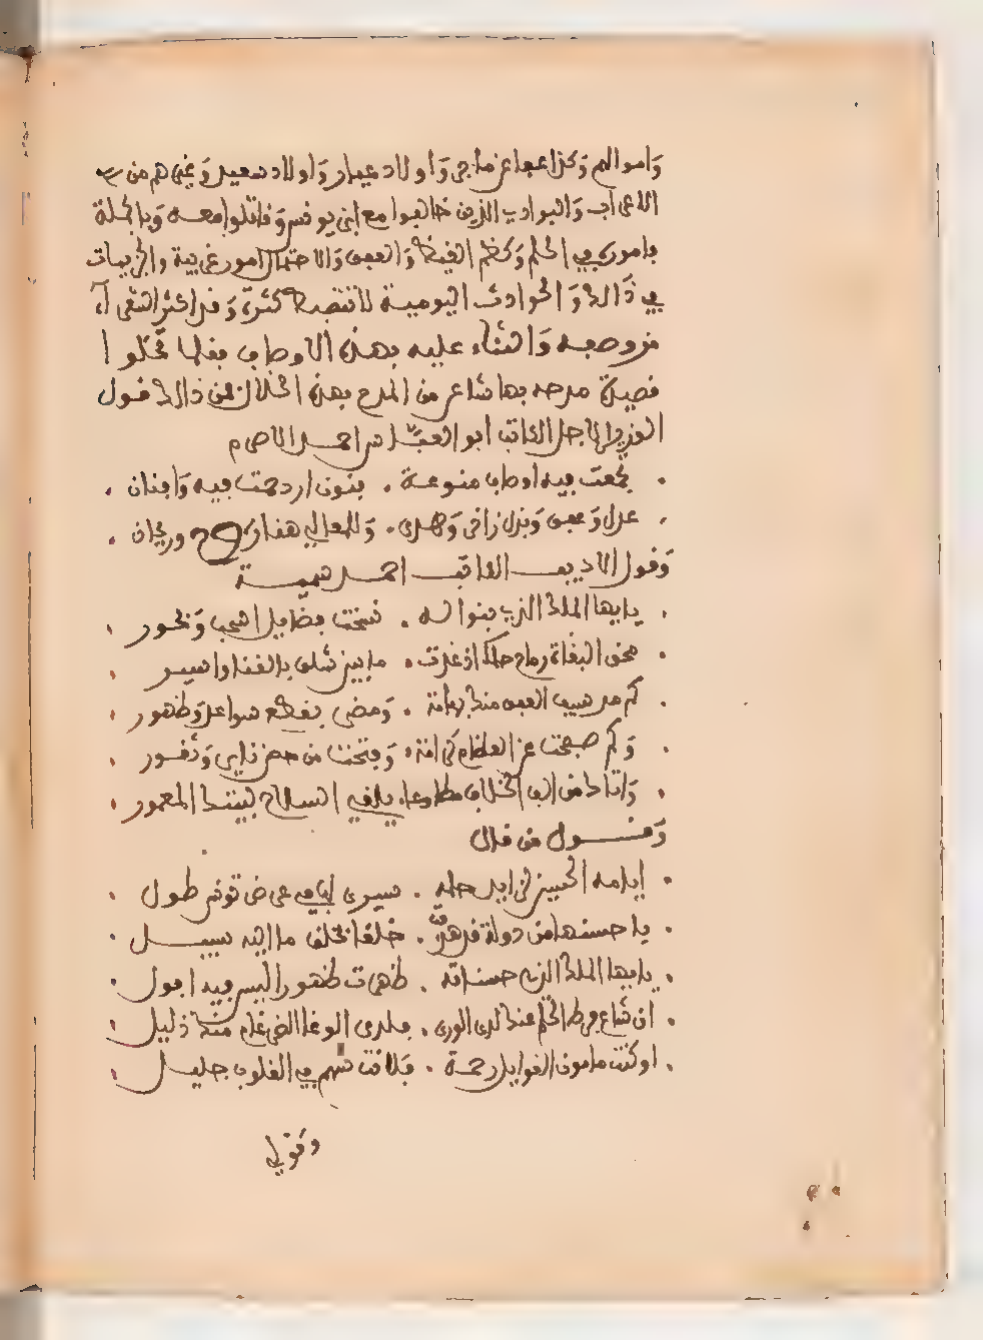 وأموالهم وكذا عفا عن ماجر وأولاد عيار وأولاد سعيد وغيرهم من
الاعراب والبوادي الذين خالفوا مع ابن يونس وقاتلوا معه وبالجملة
فأموره في الحلم وكظم الغيظ والعفو والاحتمال أمور غريبة والجزئيات
في ذالك والحوادث اليومية لا تنضبط كثرة وقد اكثر الشعراء
من وصفه والثناء عليه بهذه الاوصاف فقلما تخلوا
قصيدة مدحه بها شاعر من المدح بهذه الخلال فمن ذالك قول
الوزير الاجل الكاتب أبو العباس احمد الاصرم
جمعت فيه اوصاف منوعة . فنون ازدحمت فيه وافنان
عدل وعفو وبذل زاخر وهدى . وللمعالي هنا روح وريحان
وقول الاديب الكاتب احمد
يايها الملك الذي بنواله . نسخت فضايل اسحب وبحور
محق البغاة رماح حلمك اذ غدت . ما بين شلو بالفنا واسير
كم من سيف العفو منك . ومضى بقطع سواعد وظهور
وكم صفحت عن العظام . وفتحت من حصن وثغور
واتاك من الف الخلاف مطاوعا . يلقي السلاح لبيتك المعمور
وقول من قال
ايامه الحسين لن ايد حلمه . سيرى عرض تونس طول
يا حسنها من دولة قد . خلفا تخلف ما اليه سبيل
يايها الملك الذي حسناته . ظهرت ظهورا ليس فيه افول
ان شاع فرط الحلم عنك لدى الورى . فلدى الوغا منك ذليل
او كنت مامون الغوايل رحمة . فلانت شهم في القلوب جليل
وقول